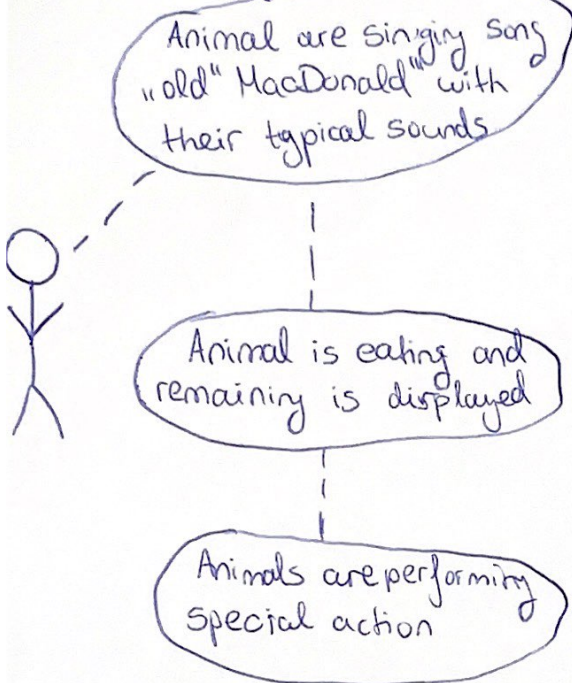 Animal are singing song
„old“ MacDonald“ with
their typical sounds
Animal is eating and
remaining is displayed
Animals are performing
special action